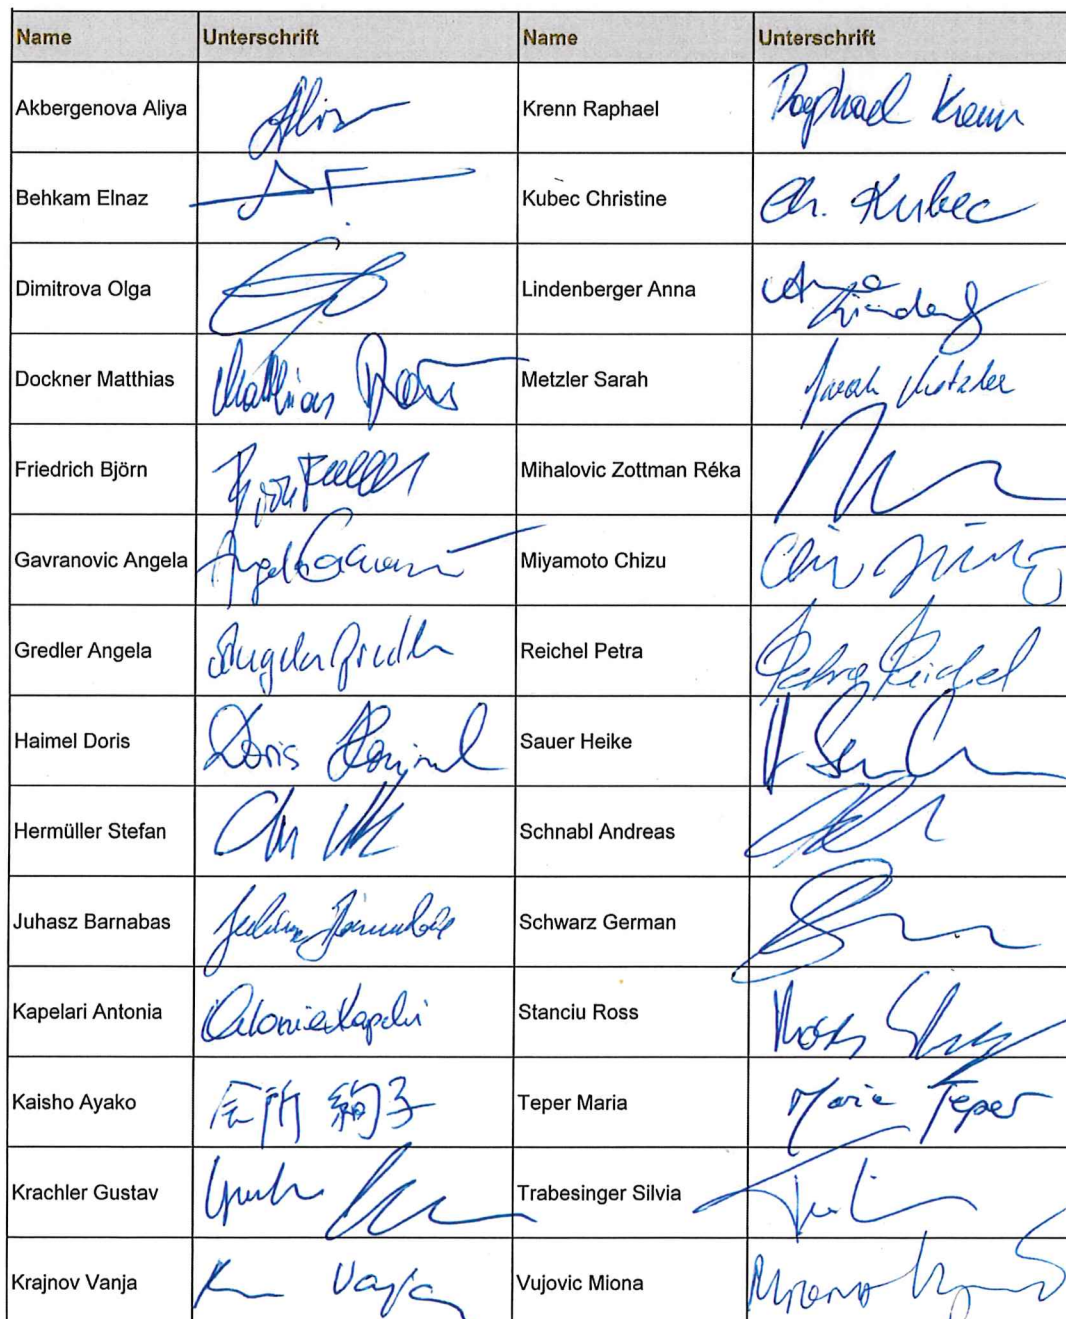 Name Unterschrift Name Unterschrift
Akbergenova Aliya Krenn Raphael Raphael Krenn
Behkam Elnaz Kubec Christine Ch. Kubec
Dimitrova Olga Lindenberger Anna
Dockner Matthias Matthias Metzler Sarah Sarah Metzler
Friedrich Björn Björn Mihalovic Zottman Réka
Gavranovic Angela Angela Miyamoto Chizu
Gredler Angela Angela Gredler Reichel Petra Petra Reichel
Haimel Doris Doris Haimel Sauer Heike
Hermüller Stefan Schnabl Andreas
Juhasz Barnabas Juhasz Barnabas Schwarz German
Kapelari Antonia Antonia Kapelari Stanciu Ross Ross
Kaisho Ayako 会所 絢子 Teper Maria Maria Teper
Krachler Gustav Trabesinger Silvia
Krajnov Vanja Vanja Vujovic Miona Miona